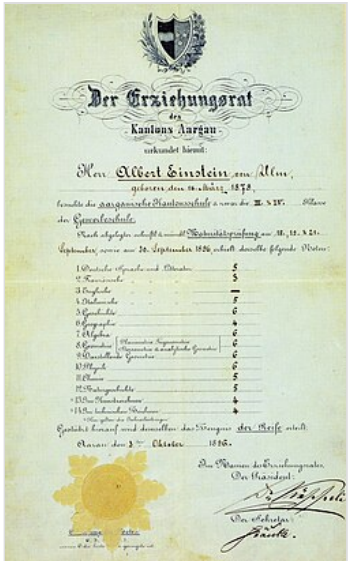 Der Erziehungsrat
des
Kantons Aargau
urkundet hiemit:
Herr Albert Einstein von Ulm,
geboren den 14. März 1879,
besuchte die aargauische Kantonsschule & zwar die III. & IV. Klasse
der Gewerbeschule.
Nach abgelegter schriftl. & mündl. Maturitätsprüfung am 18., 19. & 21.
September, sowie am 30. September 1896, erhielt derselbe folgende Noten:
1. Deutsche Sprache und Litteratur 5
2. Französische 3
3. Englische —
4. Italienische 5
5. Geschichte 6
6. Geographie 4
7. Algebra 6
8. Geometrie (Planimetrie, Trigonometrie, Stereometrie & analytische Geometrie) 6
9. Darstellende Geometrie 6
10. Physik 6
11. Chemie 5
12. Naturgeschichte 5
13. Im Kunstzeichnen 4
14. Im technischen Zeichnen 4
Gestützt hierauf wird demselben das Zeugnis der Reife erteilt.
Aarau den 3ten Oktober 1896.
Im Namen des Erziehungsrates,
Der Präsident:
Der Sekretär: